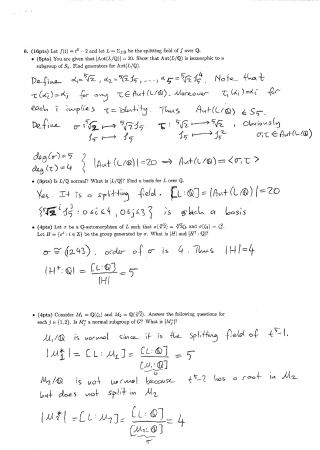 6. (16pts) Let f(t) = t⁵ − 2 and let L = Σ_f/ℚ be the splitting field of f over ℚ.
• (5pts) You are given that |Aut(L/ℚ)| = 20. Show that Aut(L/ℚ) is isomorphic to a
subgroup of S₅. Find generators for Aut(L/ℚ).
Define α₁=⁵√2, α₂=⁵√2 ζ₅, ..., α₅=⁵√2 ζ₅⁴. Note that
τ(αᵢ)=αⱼ for any τ∈Aut(L/ℚ). Moreover τ(αᵢ)=αᵢ for
each i implies τ=identity. Thus Aut(L/ℚ) ≤ S₅.
Define σ: ⁵√2 ↦ ⁵√2 ζ₅ τ: ⁵√2 ↦ ⁵√2, obviously
ζ₅ ↦ ζ₅ ζ₅ ↦ ζ₅² σ,τ∈Aut(L/ℚ)
deg(σ)=5
deg(τ)=4 } |Aut(L/ℚ)|=20 → Aut(L/ℚ)=<σ,τ>
• (4pts) Is L/ℚ normal? What is [L/ℚ]? Find a basis for L over ℚ.
Yes. It is a splitting field. [L:ℚ]=|Aut(L/ℚ)|=20
{⁵√2ⁱ ζ₅ʲ : 0≤i≤4, 0≤j≤3} is such a basis
• (4pts) Let σ be a ℚ-automorphism of L such that
Let H = be the group generated by σ. What is |H| and [H* : ℚ]?
σ ≅ (1243). order of σ is 4. Thus |H|=4
|H*:ℚ| = [L:ℚ]/|H| = 5
• (4pts) Consider M₁ = ℚ(ζ₅) and M₂ = ℚ(⁵√2). Answer the following questions for
each j ∈ {1, 2}. Is Mⱼ* a normal subgroup of G? What is |Mⱼ*|?
M₁/ℚ is normal since it is the splitting field of t⁵-1.
|M₁*| = [L:M₁] = [L:ℚ]/[M₁:ℚ] = 5
4
M₂/ℚ is not normal because t⁵-2 has a root in M₂
but does not split in M₂
|M₂*| = [L:M₂] = [L:ℚ]/[M₂:ℚ] = 4
5